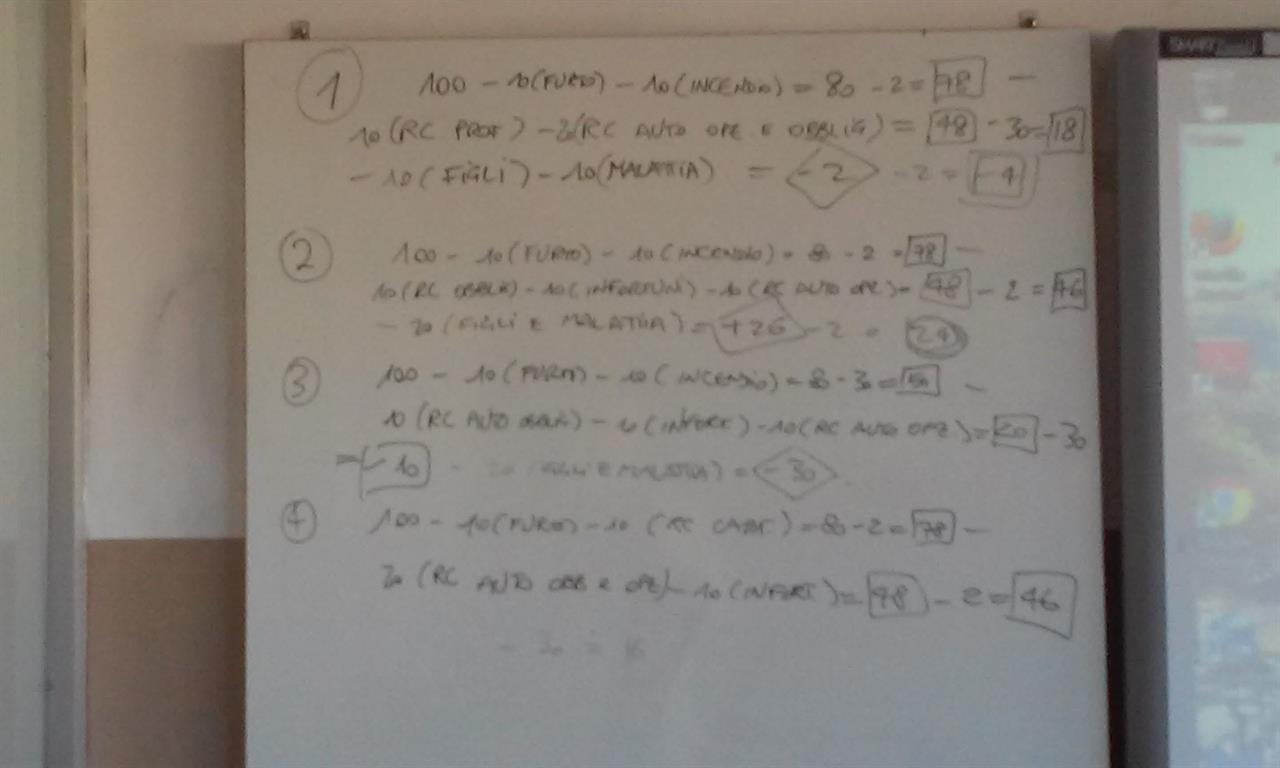 1 100 - 10 (FURTO) - 10 (INCENDIO) = 80 - 2 = 78 -
10 (RC PROF) - 20 (RC AUTO OPZ E OBBLIG) = 48 - 30 = 18
- 10 (FIGLI) - 10 (MALATTIA) = -2 - 2 = -4
2 100 - 10 (FURTO) - 10 (INCENDIO) = 80 - 2 = 78 -
10 (RC OBBLIG) - 10 (INFORTUNI) - 10 (RC AUTO OPZ) = 48 - 2 = 46
- 20 (FIGLI E MALATTIA) = +26 - 2 = 24
3 100 - 10 (FURTO) - 10 (INCENDIO) = 80 - 30 = 50 -
10 (RC AUTO OBBLIG) - 10 (INFORT) - 10 (RC AUTO OPZ) = 20 - 30
= -10 - 20 (FIGLI E MALATTIA) = -30
4 100 - 10 (FURTO) - 10 (RC CAPF.) = 80 - 2 = 78 -
20 (RC AUTO OBB e OPZ) - 10 (INFORT) = 48 - 2 = 46
- 30 = 16
SMART